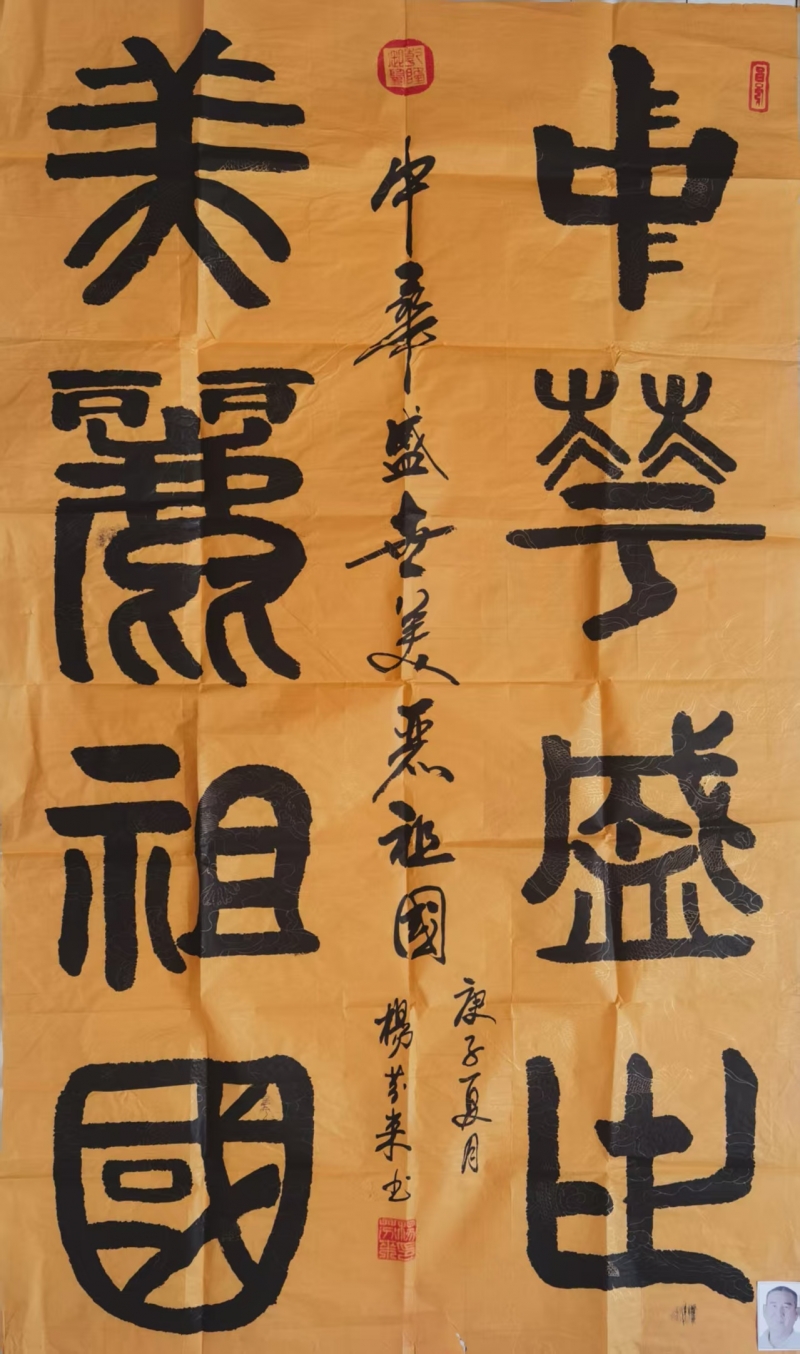 中華盛世
美麗祖國
中華盛世美麗祖國
庚子夏月
楊芬来书